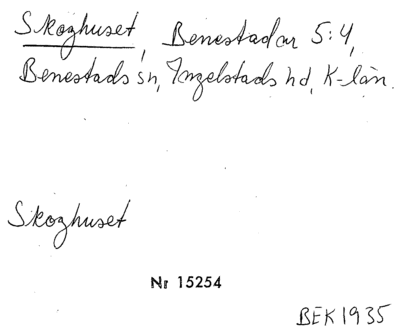 Skoghuset, Benestad nr 5:4,
Benestads sn, Ingelstads hd, K-län.
Skoghuset
Nr 15254
BEK 1935